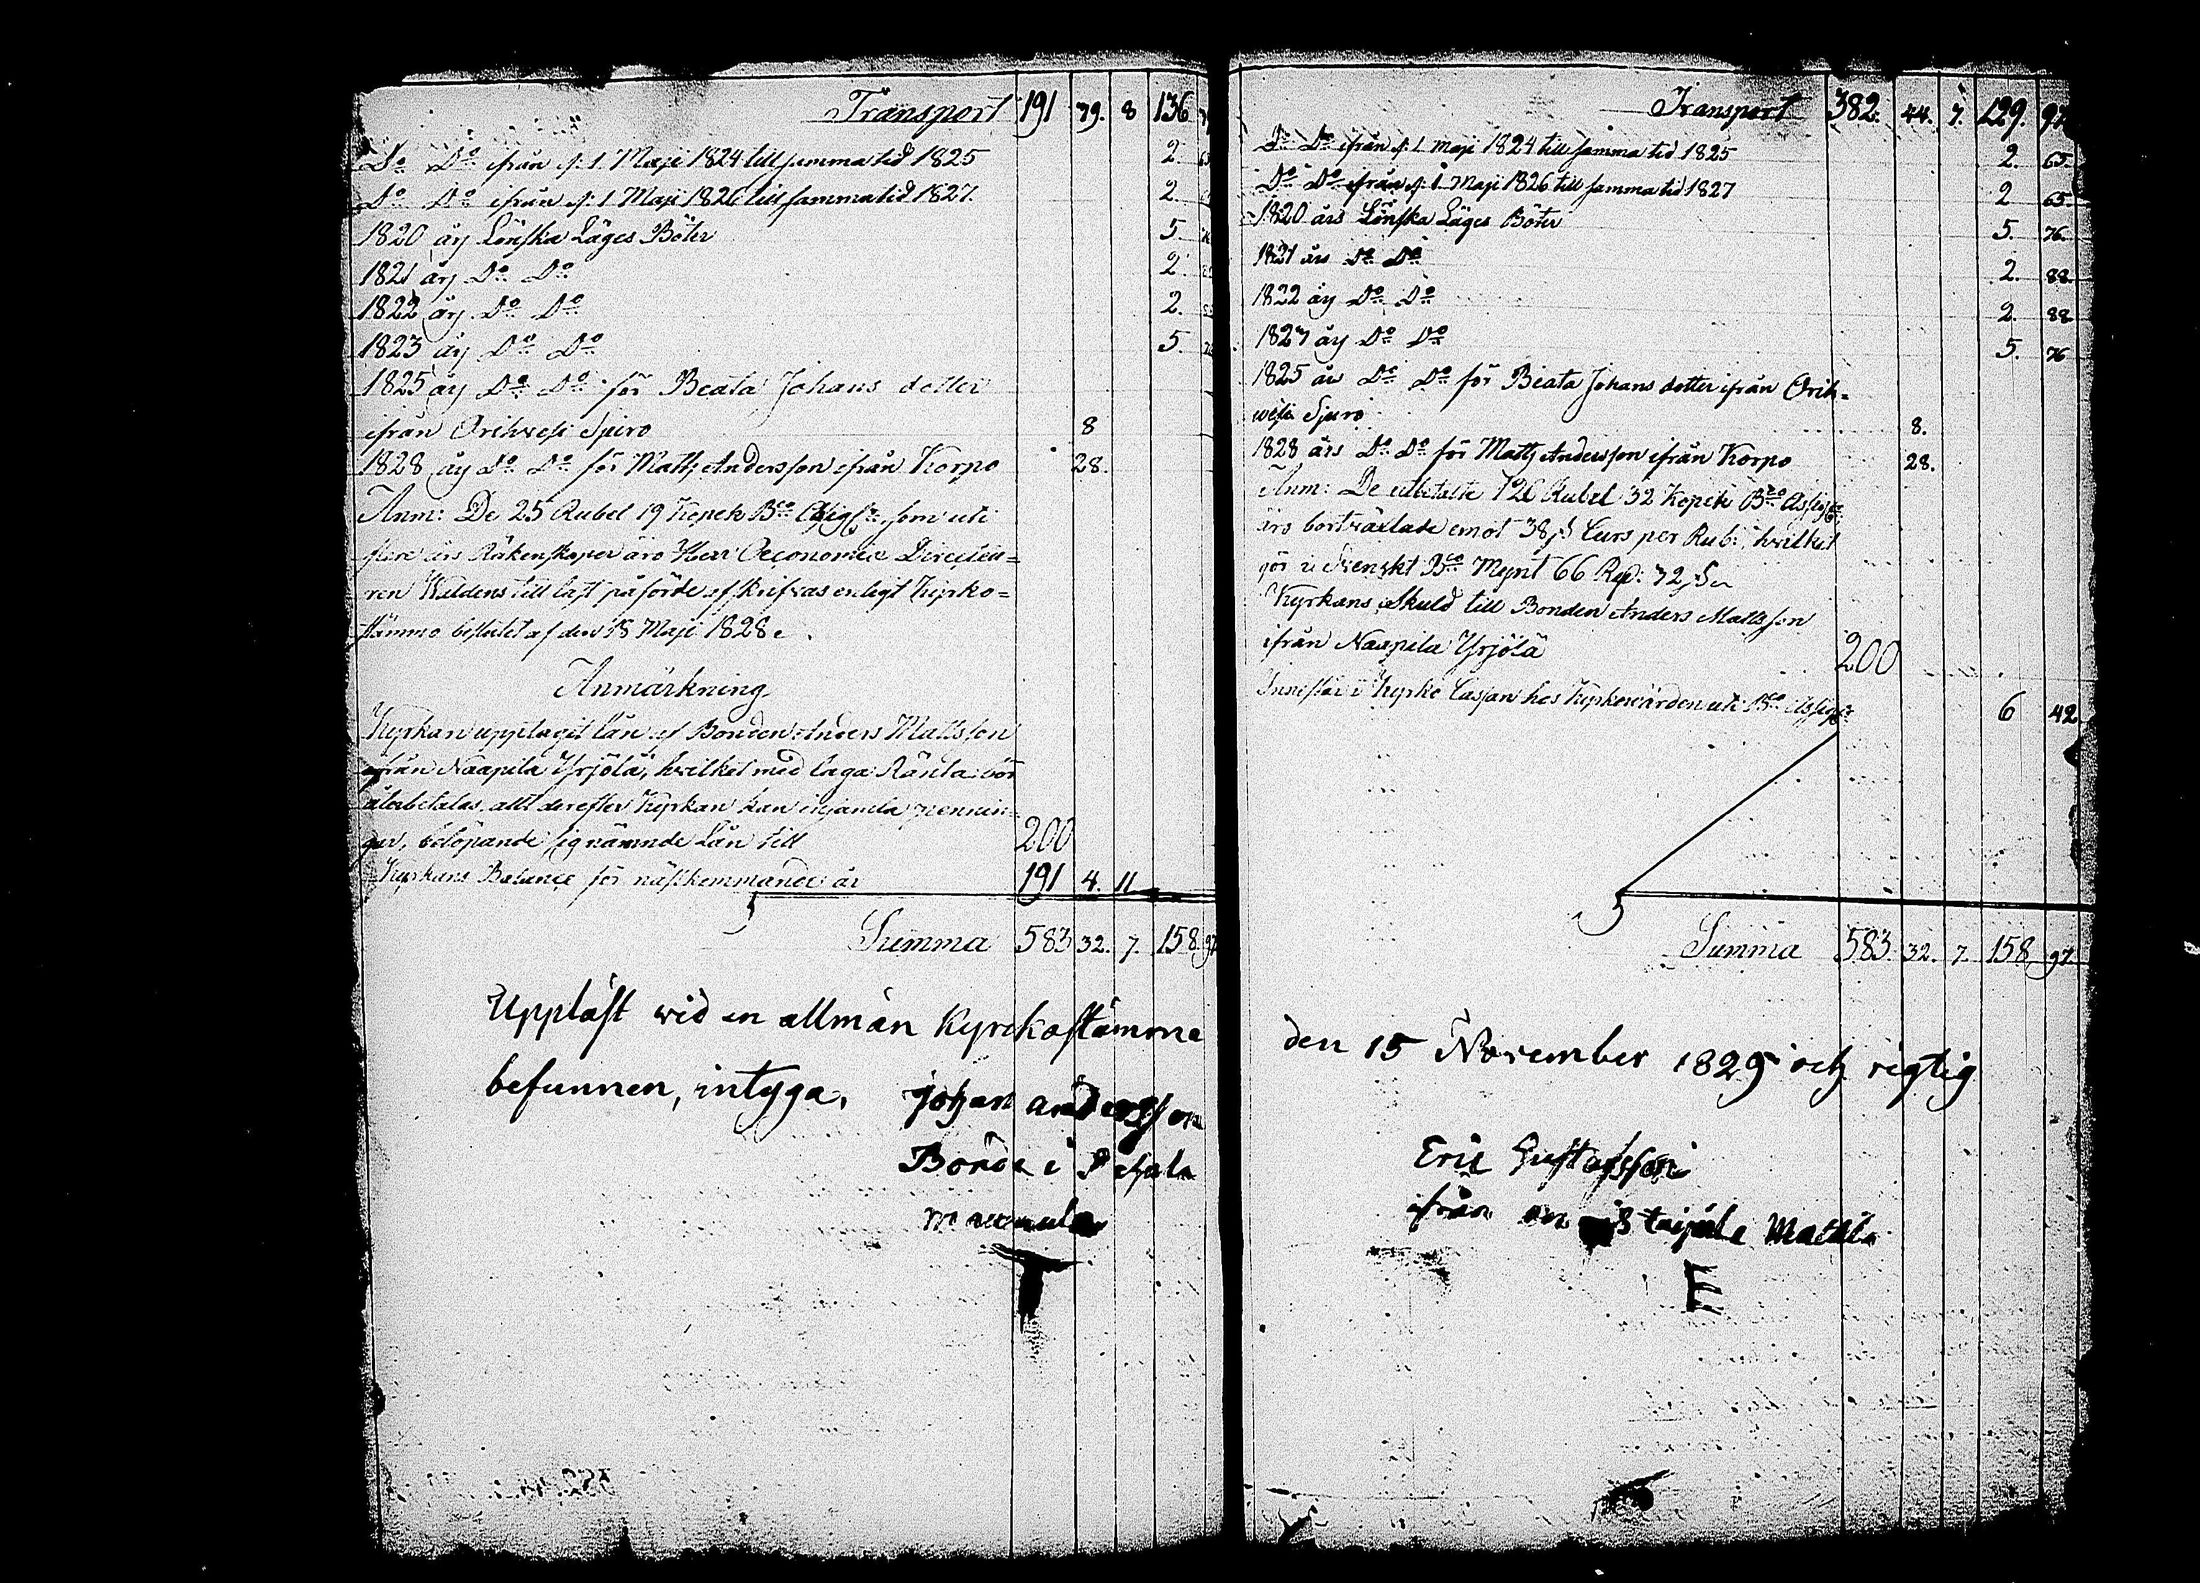 Transport 191 39. 8 136
Do Do ifrån d. 1. Maji 1824 till samma tid 1825 2.
Do Do ifrån d. 1 Maji 1826 till samma tid 1827. 2.
1820 års Lönska Läges Böter 5.
1821 års Do Do 2.
1822 års Do Do 2.
1823 års Do Do 5.
1825 års Do Do för Beata Johans dotter
ifrån Orihvesi Sjurö 8
1828 års Do Do för Matts Andersson ifrån Korpo 28.
Anm: De 25 Rubel 19 Kopek Bco Assigr. som uti
flere års Räkenskaper äro Herr Oeconomie Directeu=
ren Waldens till last påförde afskrifvas enligt Kyrko=
stämmo beslutet af den 18 Maji 1828.
Anmärkning
Kyrkan upptagit lån af Bonden Anders Mattsson
ifrån Naapila Yrjölä, hvilket med laga Ränta bör
återbetalas, allt derefter Kyrkan kan insamla pennin=
gar, belöpande sig nämnde Lån till 200
Kyrkans Balance för nästkommande år 191 4. 11
Summa 583 32. 7. 158 97
Uppläst wid en allmän Kyrckostämma
befunnen, intyga,
Johan andersson
Bonde i
T
Transport 382. 44. 7. 129. 97
Do Do ifrån d. 1 maji 1824 till samma tid 1825 2. 65.
Do Do ifrån d. 1 Maji 1826 till samma tid 1827 2 65.
1820 års Lönska Läges Böter 5. 76
1821 års Do Do 2. 88.
1822 års Do Do 2. 88
1823 års Do Do 5. 76
1825 års Do Do för Beata Johans dotter ifrån Orih=
wesi Sjurö 8.
1828 års Do Do för Matts Andersson ifrån Korpo 28.
Anm: De utbetalte 126 Rubel 32 Kopek Bco Assigr
äro bortväxlade emot 38 sk Curs per Rub: hvilket
gör i Svenskt Bco Mynt 66 Rd: 32
Kyrkans Skuld till Bonden Anders Mattsson
ifrån Naapila Yrjölä 200
Innestår i Kyrko Cassan hos Kyrkovärden uti Bco Assigr 6 42
Summa 583. 32. 7. 158 97.
den 15 November 1829 och rigtig
Eric Gustafsson
ifrån
E